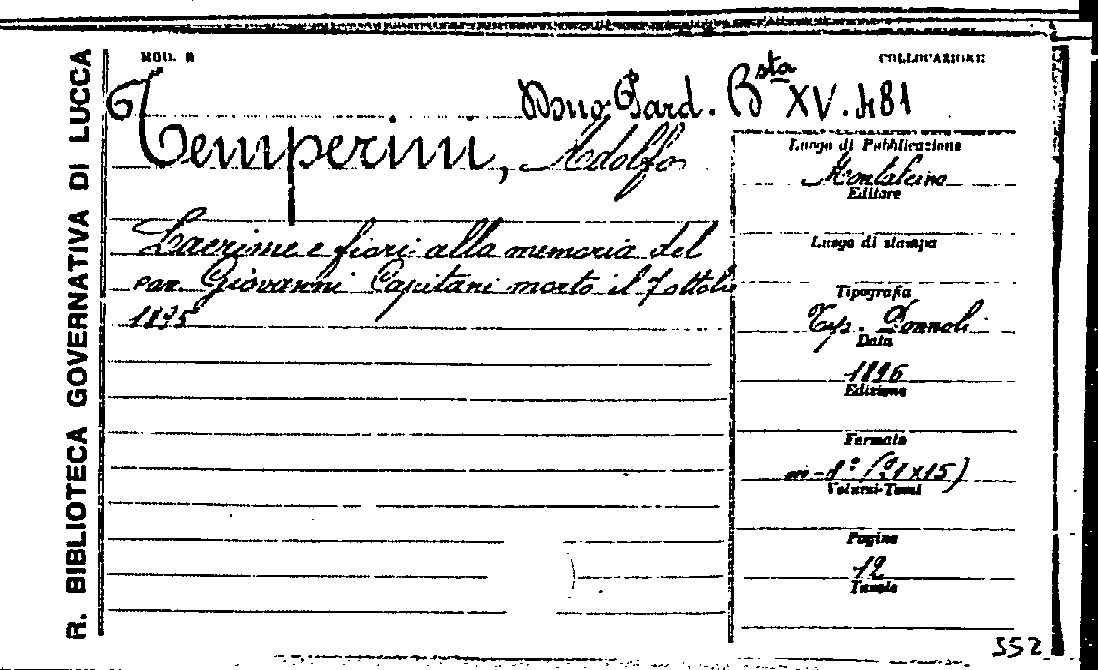 R. BIBLIOTECA GOVERNATIVA DI LUCCA
MOD. B
COLLOCAZIONE
Dono Gard. Bsta XV. 481
Temperini, Adolfo
Lacrime e fiori alla memoria del
cav. Giovanni Capitani morto il 7 ottobre
1895
Luogo di Pubblicazione
Montalcino
Editore
Luogo di stampa
Tipografia
Tip. Donnoli
Data
1896
Edizione
Formato
in-8° (21x15)
Volumi-Tomi
Pagine
12
Tavole
552